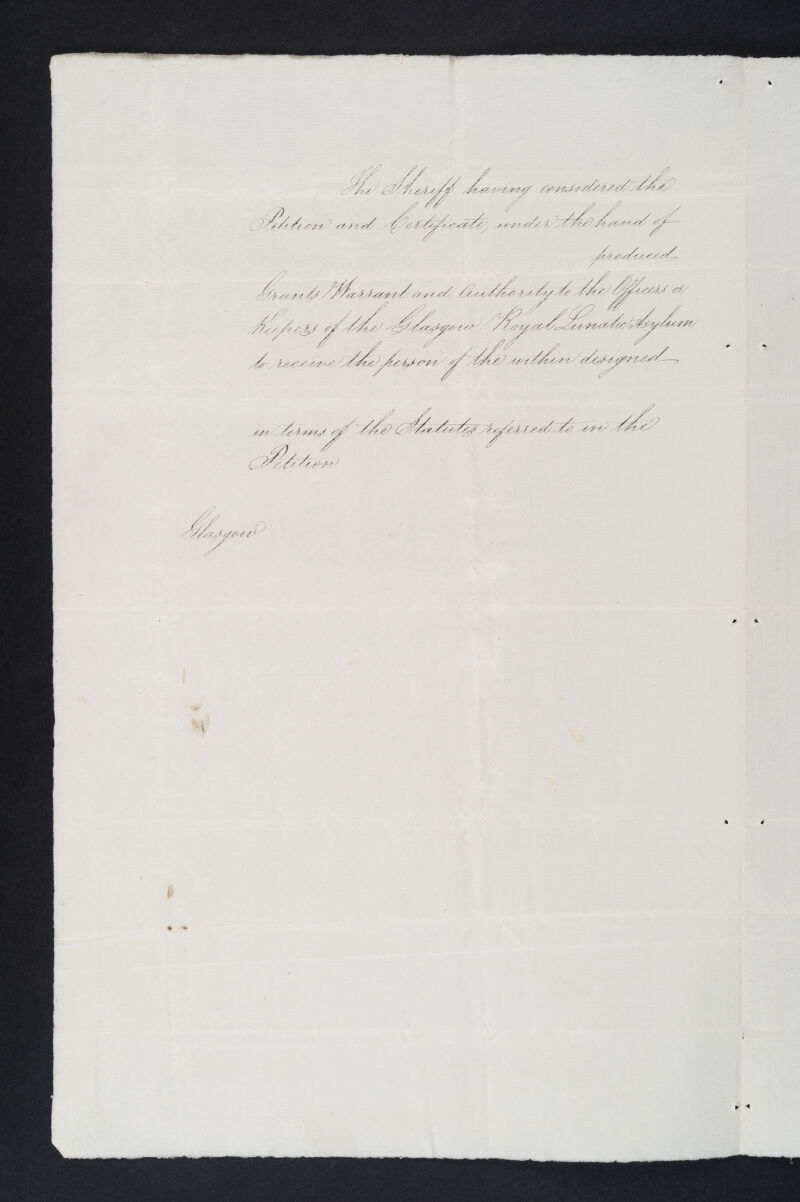 The Sheriff having considered the
Petition and Certificate, under the hand of
produced
Grants Warrant and Authority to the Officers or
Keepers of the Glasgow Royal Lunatic Asylum
to receive the person of the within designed
in terms of the Statutes referred to in the
Petition
Glasgow